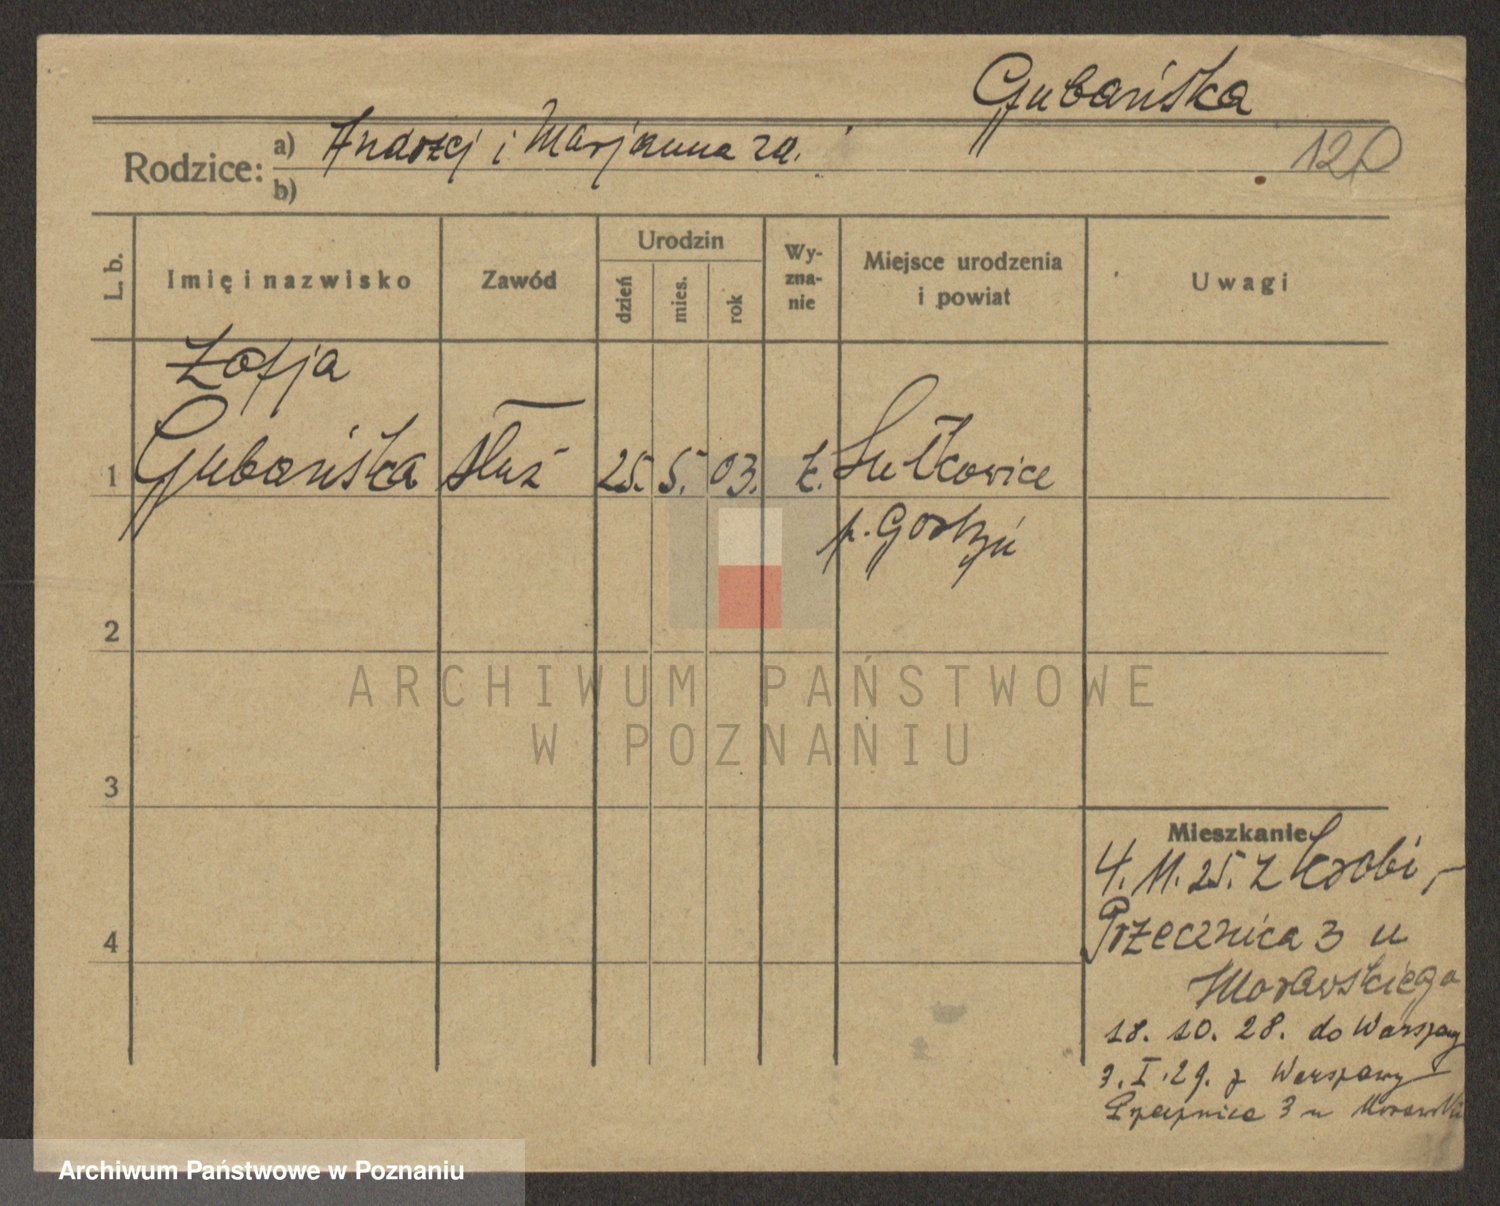 Gubańska
Rodzice: a) Andrzej i Marjanna za.
b)
L. b.
Imię i nazwisko
Zawód
Urodzin
dzień mies. rok
Wy-
zna-
nie
Miejsce urodzenia
i powiat
Uwagi
Zofja
1 Gubańska służ 25. 5. 03. k. Sułkowice
p. Gostyń
2
3
4
ARCHIWUM PAŃSTWOWE
W POZNANIU
Mieszkanie
4. 11. 25. z Krobi,
Przecznica 3 u
Morawskiego
18. 10. 28. do Warszawy
3. I. 29. z Warszawy
3 u
Archiwum Państwowe w Poznaniu